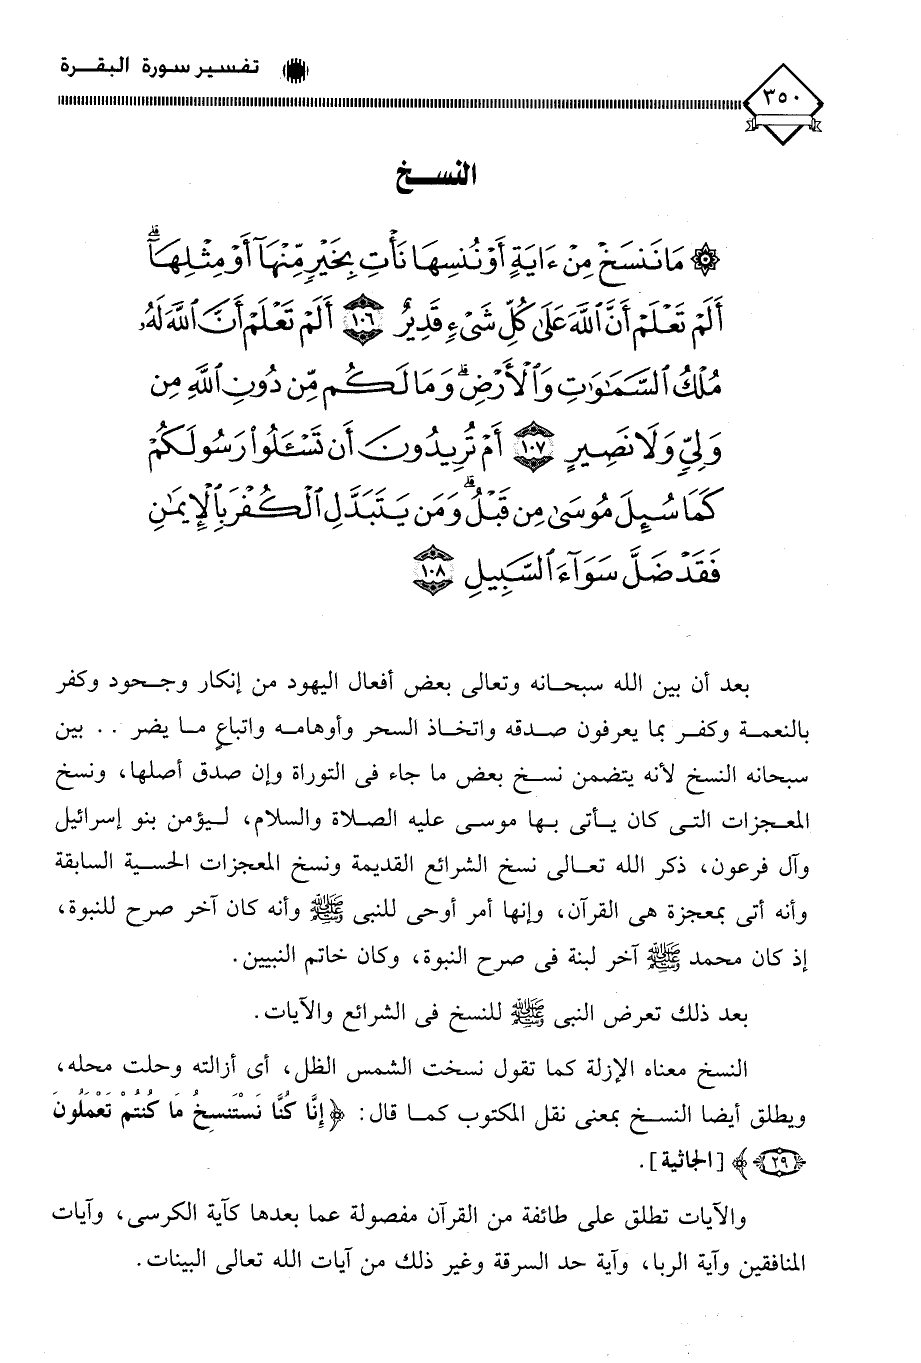 تفسير سورة البقرة
٣٥٠
النسخ
۞ مَا نَنسَخْ مِنْ ءَايَةٍ أَوْ نُنسِهَا نَأْتِ بِخَيْرٍ مِّنْهَآ أَوْ مِثْلِهَآ ۗ
أَلَمْ تَعْلَمْ أَنَّ ٱللَّهَ عَلَىٰ كُلِّ شَىْءٍ قَدِيرٌ ١٠٦ أَلَمْ تَعْلَمْ أَنَّ ٱللَّهَ لَهُۥ
مُلْكُ ٱلسَّمَـٰوَٰتِ وَٱلْأَرْضِ ۗ وَمَا لَكُم مِّن دُونِ ٱللَّهِ مِن
وَلِىٍّ وَلَا نَصِيرٍ ١٠٧ أَمْ تُرِيدُونَ أَن تَسْـَٔلُوا۟ رَسُولَكُمْ
كَمَا سُئِلَ مُوسَىٰ مِن قَبْلُ ۗ وَمَن يَتَبَدَّلِ ٱلْكُفْرَ بِٱلْإِيمَـٰنِ
فَقَدْ ضَلَّ سَوَآءَ ٱلسَّبِيلِ ١٠٨
بعد أن بين الله سبحانه وتعالى بعض أفعال اليهود من إنكار وجحود وكفر
بالنعمة وكفر بما يعرفون صدقه واتخاذ السحر وأوهامه واتباع ما يضر .. بين
سبحانه النسخ لأنه يتضمن نسخ بعض ما جاء فى التوراة وإن صدق أصلها، ونسخ
المعجزات التى كان يأتى بها موسى عليه الصلاة والسلام، ليؤمن بنو إسرائيل
وآل فرعون، ذكر الله تعالى نسخ الشرائع القديمة ونسخ المعجزات الحسية السابقة
وأنه أتى بمعجزة هى القرآن، وإنها أمر أوحى للنبى ﷺ وأنه كان آخر صرح للنبوة،
إذ كان محمد ﷺ آخر لبنة فى صرح النبوة، وكان خاتم النبيين.
بعد ذلك تعرض النبى ﷺ للنسخ فى الشرائع والآيات.
النسخ معناه الإزلة كما تقول نسخت الشمس الظل، أى أزالته وحلت محله،
ويطلق أيضا النسخ بمعنى نقل المكتوب كما قال: ﴿إِنَّا كُنَّا نَسْتَنسِخُ مَا كُنتُمْ تَعْمَلُونَ
٢٩﴾ [الجاثية].
والآيات تطلق على طائفة من القرآن مفصولة عما بعدها كآية الكرسى، وآيات
المنافقين وآية الربا، وآية حد السرقة وغير ذلك من آيات الله تعالى البينات.